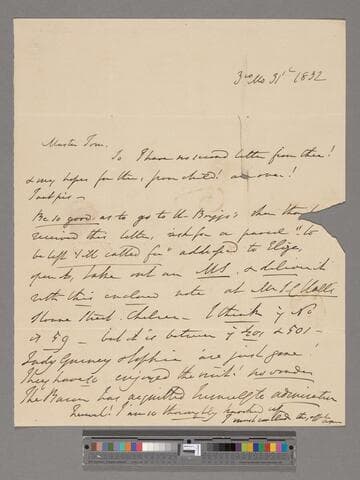 3rd Mo 31st 1832
Master Tom.
So I have no second letter from thee!
& my hopes for thee, poor child! are over!
Be so good as to go to the Briggs's when thou
received this letter, ask for a parcel "to
be left till called for" addressed to Eliza,
open it, take out an MS. & deliver it
with this enclosed note at Mrs S C Hall's
Sloane Street. Chelsea — I think y No
is 59 — but it is between y
Lady Gurney & Sophia are just gone!
They have so enjoyed the visit! no wonder
The Baron has acquitted himself to admiration
Farewell! I am so thoroughly
I must